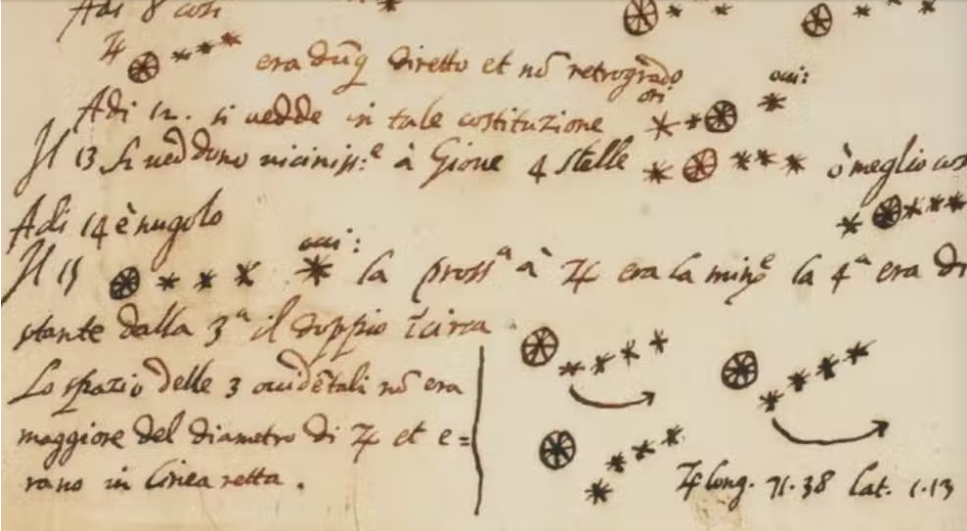 Adi 8 cosi
♃ era dūq̄ diretto et nō retrogrado
ori: occi:
Adi 12. si vedde in tale costituzione
Il 13 si veddono vicinissᵉ à Giove 4 stelle ò meglio cosi
Adi 14 è nugolo
occi:
Il 15 la prossᵃ à ♃ era la minᵉ la 4ᵃ era di
stante dalla 3ᵃ il doppio ī circa
Lo spazio delle 3 occidētali nō era
maggiore del diametro di ♃ et e=
rano in linea retta.
♃ long. 71.38 lat. 1.13